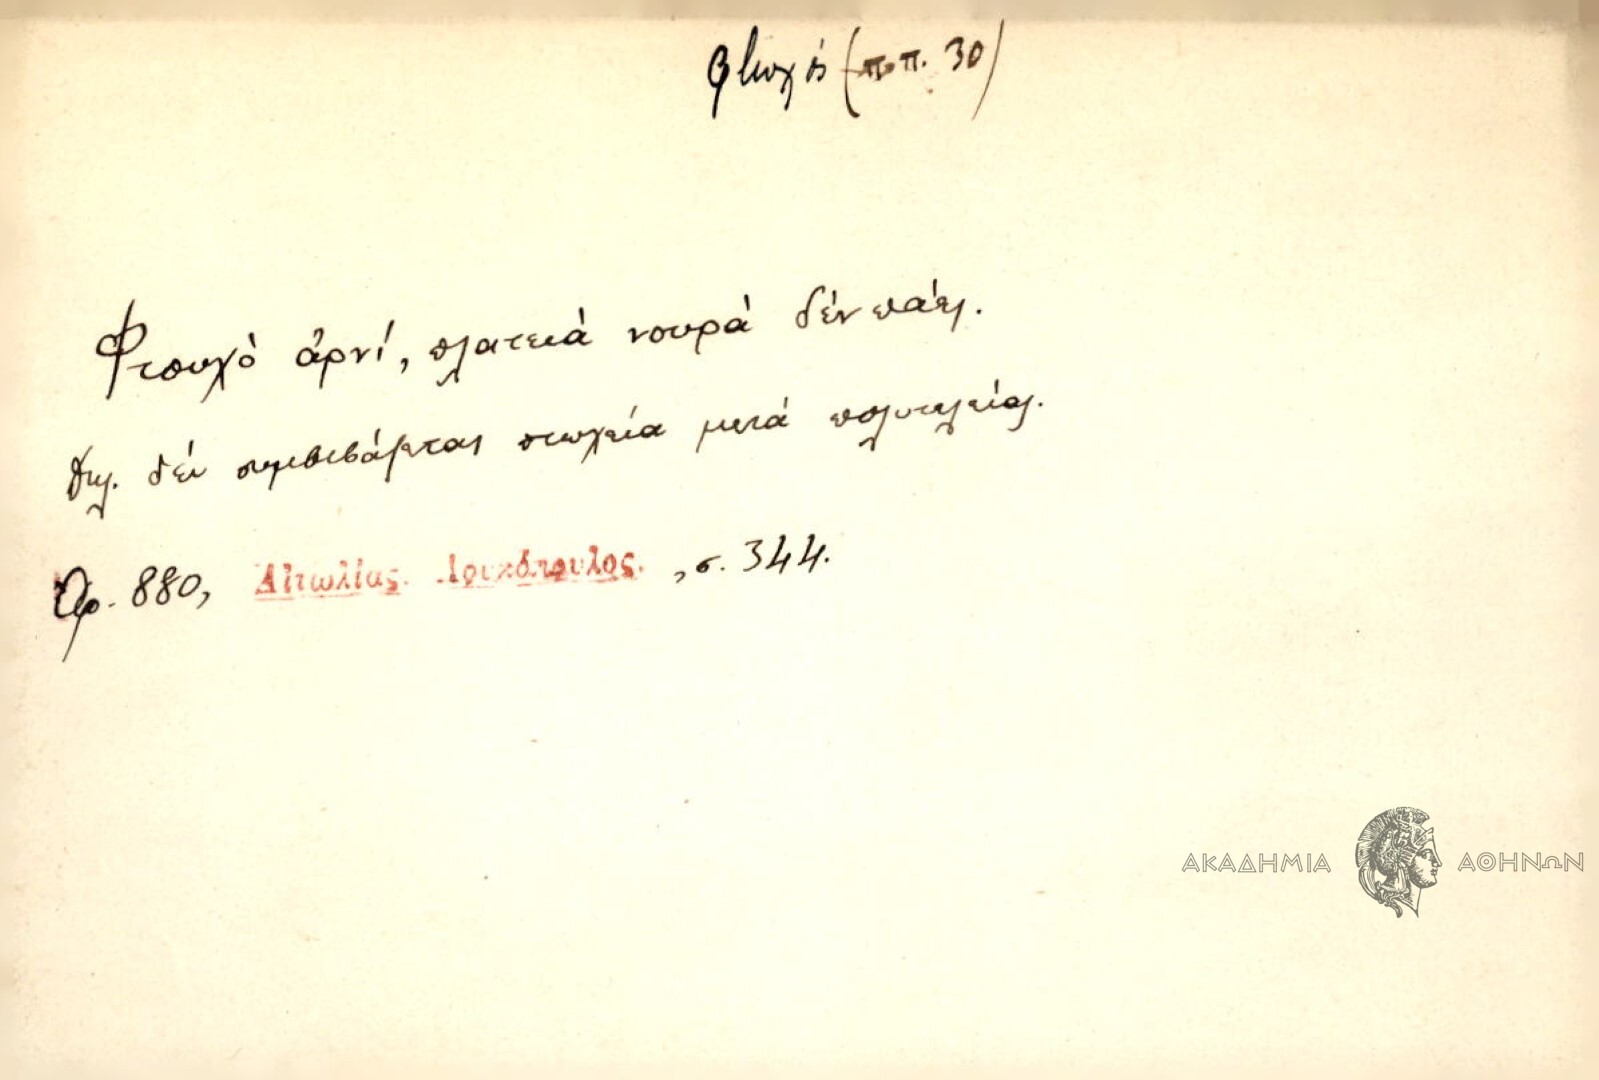 φτωχός (π π. 30)
Φτουχό ἀρνί, πλατειά νουρά δέν πάει.
δηλ. δέν συμβιβάζεται πτωχεία μετά πολυτελείας.
Ἀρ. 880, Αἰτωλίας. Λουκόπουλος. , σ. 344.
ΑΚΑΔΗΜΙΑ ΑΘΗΝΩΝ